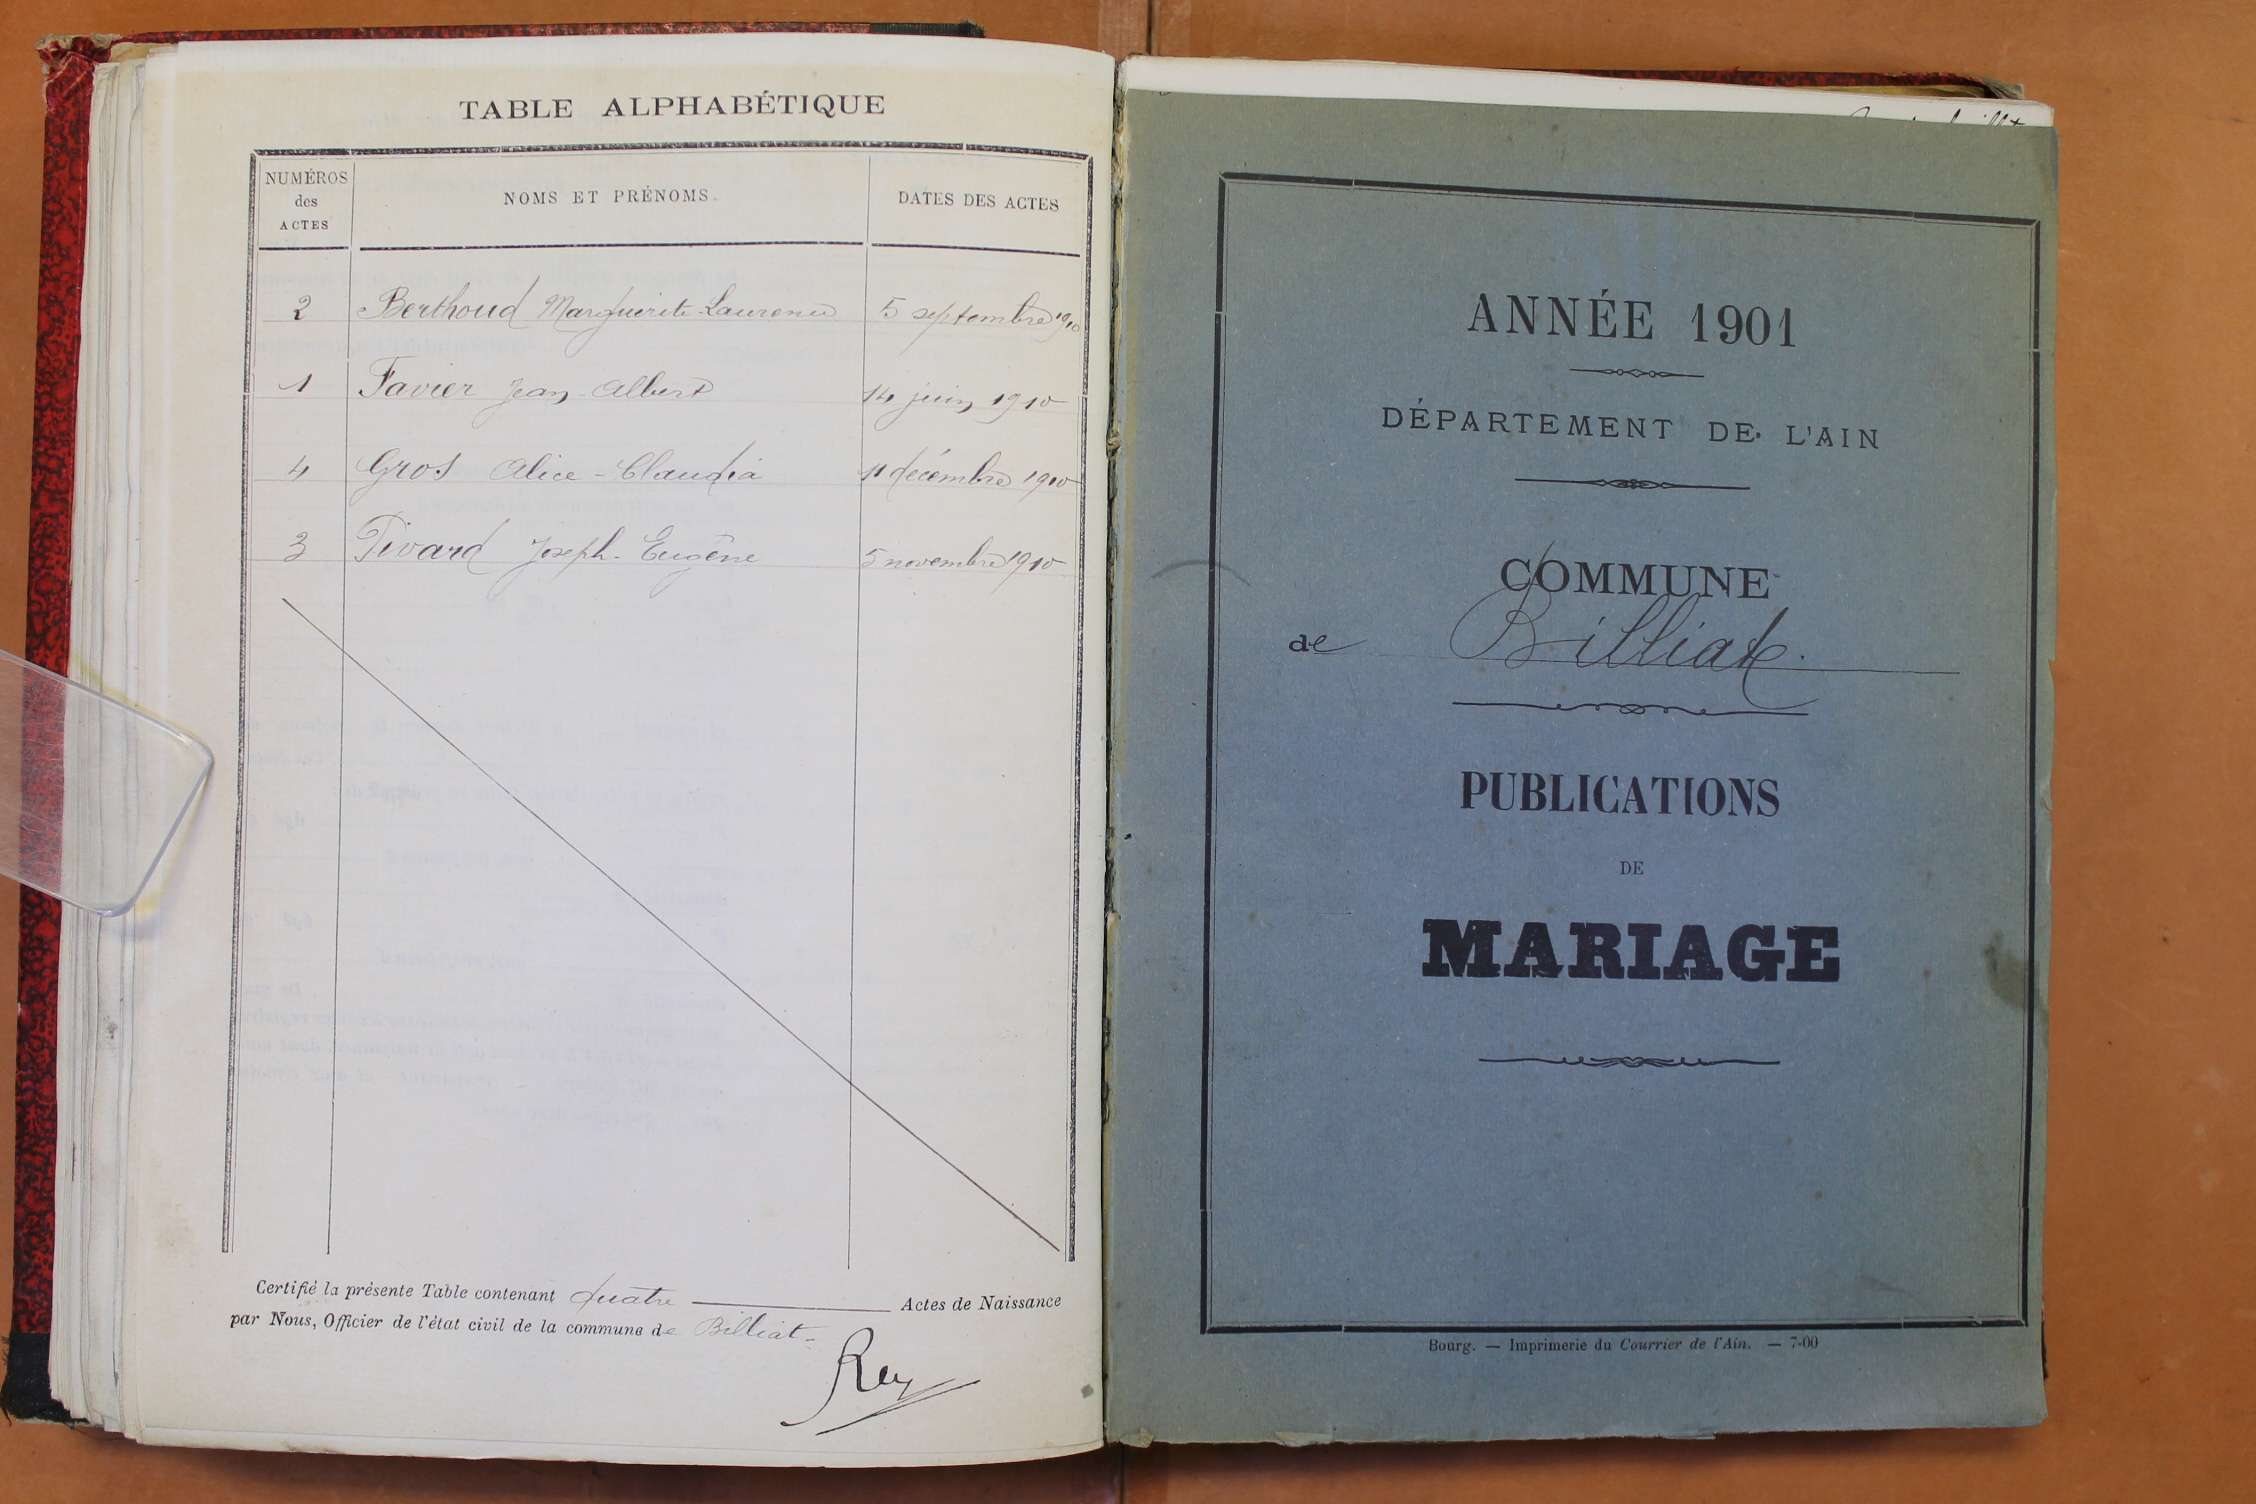 TABLE ALPHABÉTIQUE
NUMÉROS des ACTES
NOMS ET PRÉNOMS.
DATES DES ACTES
2 Berthoud Marguerite-Laurence 5 septembre 1910
1 Favier Jean-Albert 14 juin 1910
4 Gros Alice-Claudia 11 décembre 1910
3 Pivard Joseph-Eugène 5 novembre 1910
Certifié la présente Table contenant quatre Actes de Naissance
par Nous, Officier de l'état civil de la commune de Billiat
Rey
ANNÉE 1901
DÉPARTEMENT DE L'AIN
COMMUNE
de Billiat.
PUBLICATIONS
DE
MARIAGE
Bourg. — Imprimerie du Courrier de l'Ain. — 7-00